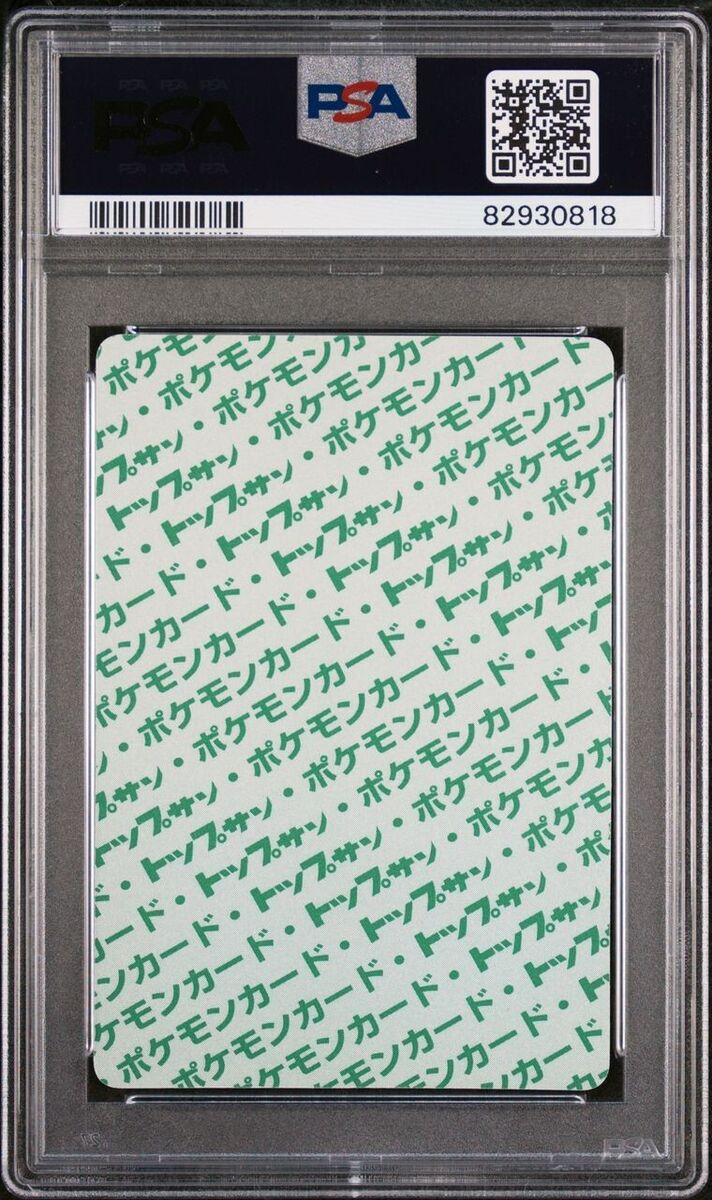 PSA PSA PSA
PSA
PSA PSA PSA
PSA
82930818
ポケモ
ン・ポケモン
プサン・ポケモンカ
トップサン・ポケモンカード
ド・トップサン・ポケモンカード
カード・トップサン・ポケモンカー
モンカード・トップサン・ポケモン
ポケモンカード・トップサン・ポケ
・ポケモンカード・トップサン・
プサン・ポケモンカード・トップサ
トップサン・ポケモンカード・トップ
・トップサン・ポケモンカード・
ード・トップサン・ポケモンカード
ンカード・トップサン・ポケモンカ
ケモンカード・トップサン・ポケモ
ポケモンカード・トップサン・ポ
ポケモンカード・トップサン
ケモンカード・トップ
モンカード・ト
ンカード
PSA